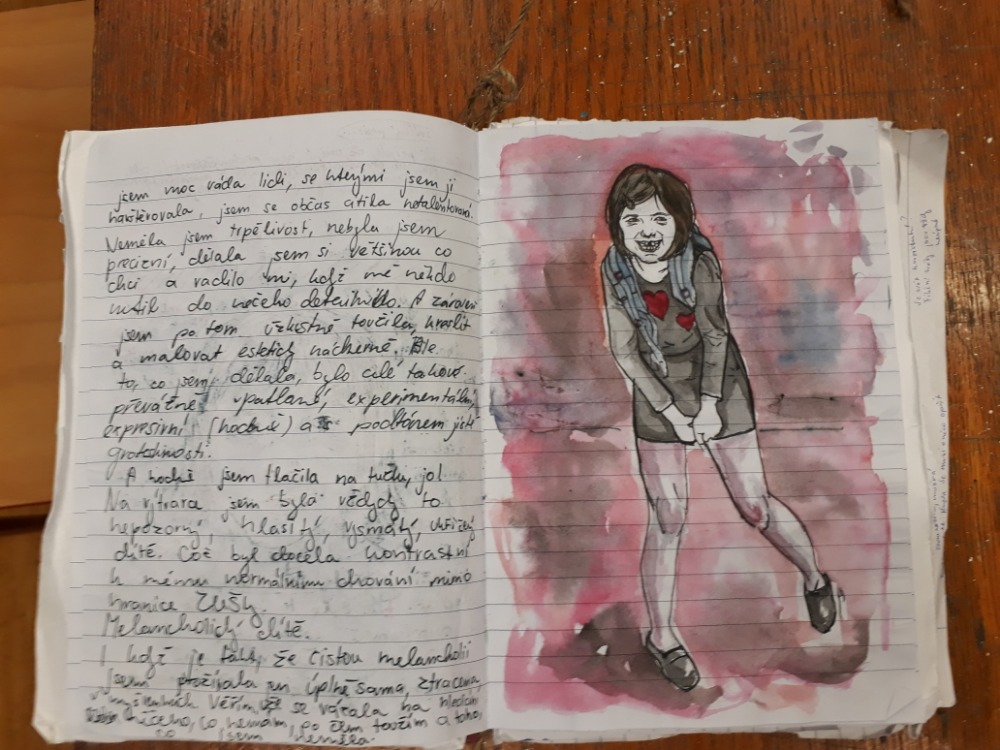 jsem moc ráda lidi, se kterými jsem ji
navštěvovala, jsem se občas cítila netalentovaná.
Neměla jsem trpělivost, nebyla jsem
precizní, dělala jsem si většinou co
chci a vadilo mi, když mě někdo
nutil do něčeho detailního. A zároveň
jsem po tom úzkostně toužila, kreslit
a malovat esteticky nádherně. Ale
to, co jsem dělala, bylo celé takové
převážně patlané, experimentální,
expresivní (hodně) a s podtónem jisté
grotesknosti.
A hodně jsem tlačila na tužku, jo!
Na výtvarce jsem byla vždycky to
nepozorný, hlasitý, vysmátý, uřičený
dítě. Což byl docela kontrastní
k mému normálnímu chování mimo
hranice ZUŠky.
Melancholický dítě.
I když je fakt, že čistou melancholii
jsem prožívala jen úplně sama, ztracena
v myšlenkách. Věřím, že se vázala na hledání
něčeho, co nemám, po čem toužím a toho,
co jsem neměla.